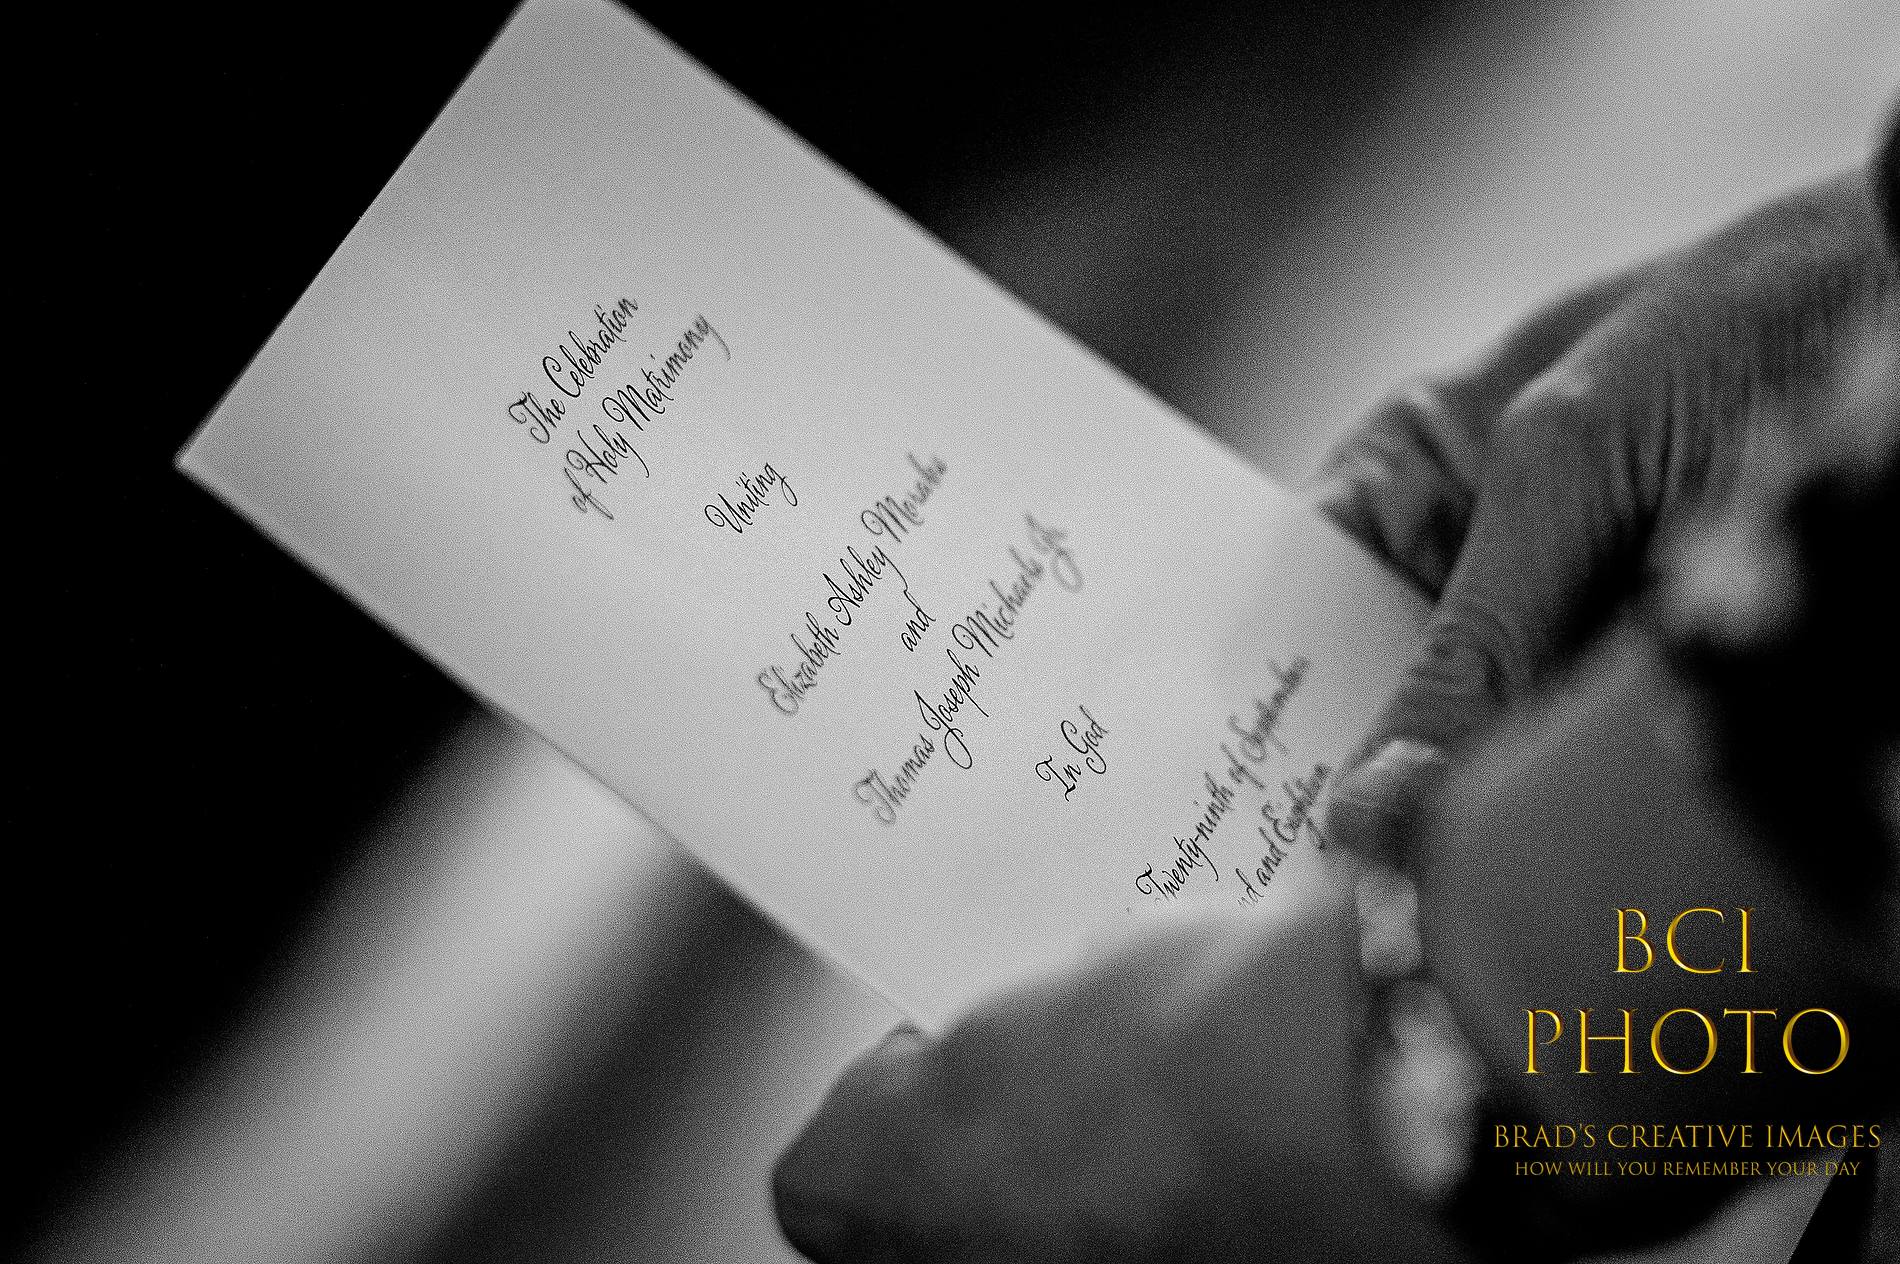 The Celebration
of Holy Matrimony
Uniting
Elizabeth Ashley
and
Thomas Joseph Michaels Jr
In God
Twenty-ninth of September
and Eighteen
BCI
PHOTO
BRAD'S CREATIVE IMAGES
HOW WILL YOU REMEMBER YOUR DAY